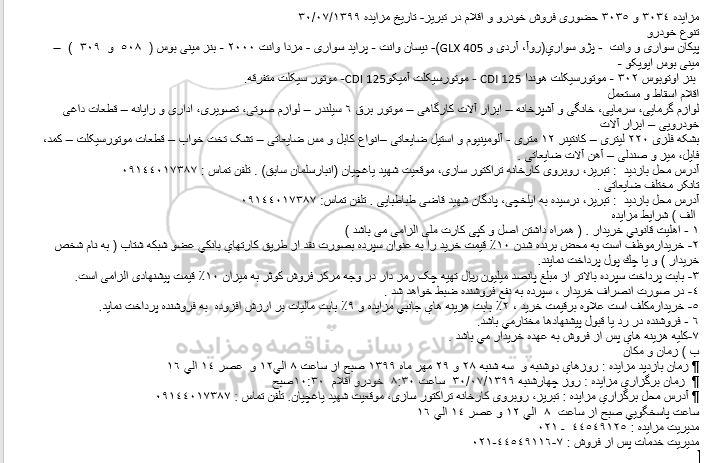 مزایده ۳۰۳٤ و ۳۰۳٥ حضوری فروش خودرو و اقلام در تبریز- تاریخ مزایده ۳۰/۰۷/۱۳۹۹
تنوع خودرو
پیکان سواری و وانت - پژو سواري(روآ، آردی و GLX 405)- نیسان وانت - پراید سواری - مزدا وانت ۲۰۰۰ - بنز مینی بوس ( ۵۰۸ و ۳۰۹ ) –
مینی بوس ایویکو -
بنز اوتوبوس ۳۰۲ - موتورسیکلت هوندا CDI 125 - موتورسیکلت آمیکوCDI 125- موتور سیکلت متفرقه.
اقلام اسقاط و مستعمل
لوازم گرمایی، سرمایی، خانگی و آشپزخانه – ابزار آلات کارگاهی – موتور برق ٦ سیلندر – لوازم صوتی، تصویری، اداری و رایانه – قطعات داغی
خودرویی – ابزار آلات
بشکه فلزی ۲۲۰ لیتری – کانتینر ۱۲ متری - آلومینیوم و استیل ضایعاتی –انواع کابل و مس ضایعاتی – تشک تخت خواب – قطعات موتورسیکلت – کمد،
فایل، میز و صندلی – آهن آلات ضایعاتی .
آدرس محل بازدید : تبریز، روبروی کارخانه تراکتور سازی، موقعیت شهید یاغچیان (انبارسلمان سابق) . تلفن تماس : ۰۹۱٤٤۰۱۷۳۸۷
تانکر مختلف ضایعاتی .
آدرس محل بازدید : تبریز، نرسیده به ایلخچی، پادگان شهید قاضی طباطبایی . تلفن تماس: ۰۹۱٤٤۰۱۷۳۸۷
الف ) شرایط مزایده
۱ - اهلیت قانوني خریدار . ( همراه داشتن اصل و کپی کارت ملي الزامی می باشد )
۲- خریدارموظف است به محض برنده شدن ۱۰٪ قیمت خرید را به عنوان سپرده بصورت نقد از طریق کارتهاي بانکي عضو شبکه شتاب ( به نام شخص
خریدار ) و یا چك پول پرداخت نمایند.
۳- بابت پرداخت سپرده بالاتر از مبلغ پانصد میلیون ریال تهیه چک رمز دار در وجه مرکز فروش کوثر به میزان ۱۰٪ قیمت پیشنهادی الزامی است.
٤- در صورت انصراف خریدار ، سپرده به نفع فروشنده ضبط خواهد شد .
۵- خریدارمکلف است علاوه برقیمت خرید ، ۲٪ بابت هزینه هاي جانبي مزایده و ۹٪ بابت مالیات بر ارزش افزوده به فروشنده پرداخت نماید.
٦ - فروشنده در رد یا قبول پیشنهادها مختارمي باشد.
۷-کلیه هزینه هاي پس از فروش به عهده خریدار مي باشد .
ب ) زمان و مکان
¶ زمان بازدید مزایده : روزهاي دوشنبه و سه شنبه ۲۸ و ۲۹ مهر ماه ۱۳۹۹ صبح از ساعت ۸ الي۱۲ و عصر ۱٤ الي ۱٦
¶ زمان برگزاري مزایده : روز چهارشنبه ۳۰/۰۷/۱۳۹۹ ساعت ۸:۳۰ خودرو اقلام ۱۰:۳۰صبح
¶ آدرس محل برگزاري مزایده : تبریز، روبروی کارخانه تراکتور سازی، موقعیت شهید یاغچیان. تلفن تماس : ۰۹۱٤٤۰۱۷۳۸۷
ساعت پاسخگویي صبح از ساعت ۸ الي ۱۲ و عصر ۱٤ الي ۱٦
مدیریت مزایده : ٤٤٥٤۹۱۲٥ - ۰۲۱
مدیریت خدمات پس از فروش : ۷-۰۲۱-٤٤٥٤۹۱۱٦
ParsNamadData
پایگاه اطلاع رسانی مناقصه و مزایده